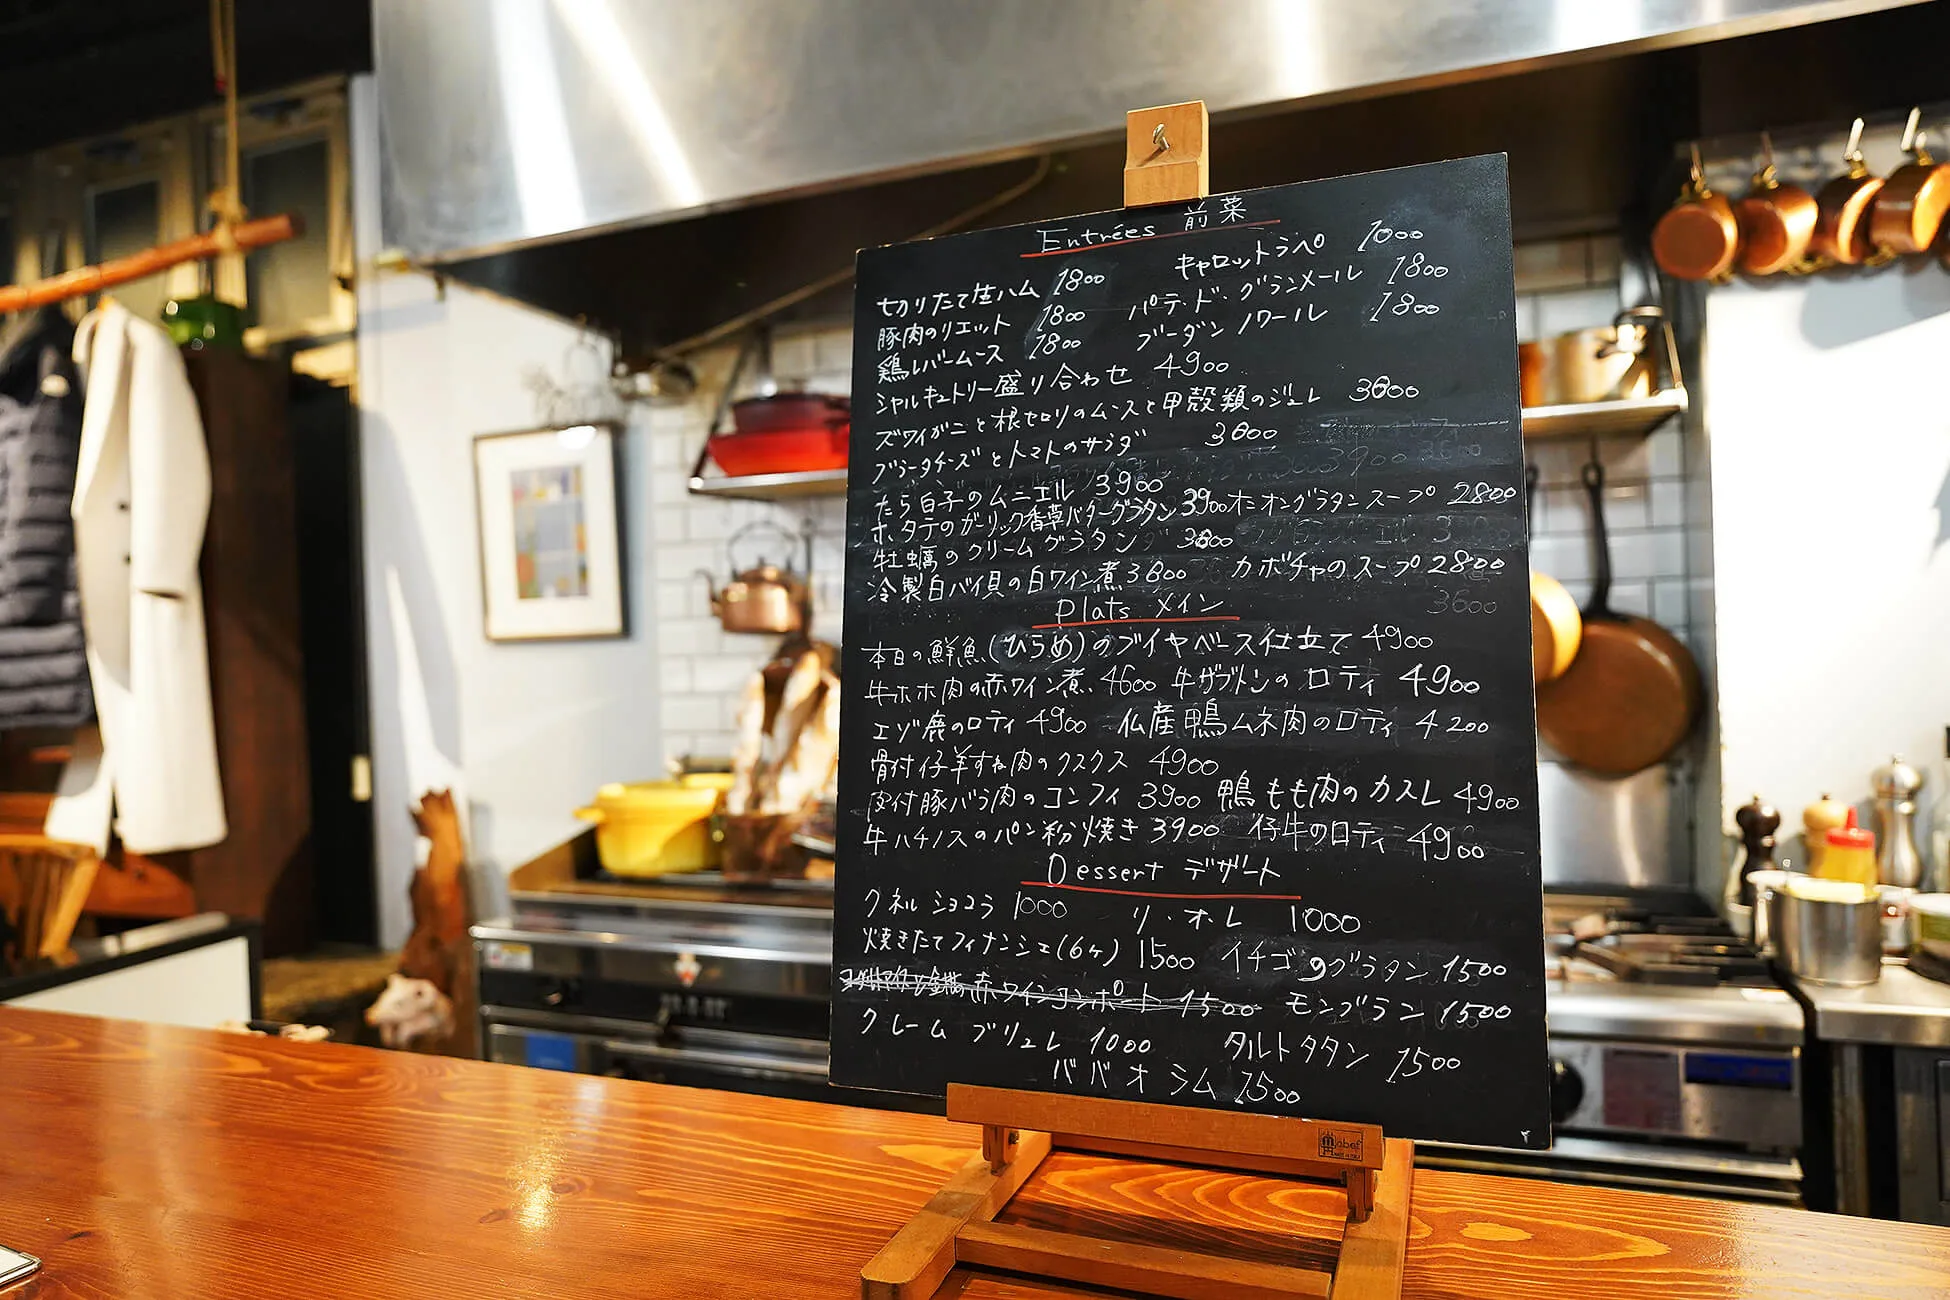 Entrées 前菜
切りたて生ハム 1800 キャロットラペ 1000
豚肉のリエット 1800 パテ・ド・グランメール 1800
鶏レバームース 1800 ブーダンノワール 1800
シャルキュトリー盛り合わせ 4900
ズワイガニと根セロリのムースと甲殻類のジュレ 3600
ブラータチーズとトマトのサラダ 3600
たら白子のムニエル 3900
ホタテのガーリック香草バターグラタン 3900 オニオングラタンスープ 2800
牡蠣のクリームグラタン 3600
冷製白バイ貝の白ワイン煮 3800 カボチャのスープ 2800
Plats メイン
本日の鮮魚(ひらめ)のブイヤベース仕立て 4900
牛ホホ肉の赤ワイン煮 4600 牛ザブトンのロティ 4900
エゾ鹿のロティ 4900 仏産鴨ムネ肉のロティ 4200
骨付仔羊すね肉のクスクス 4900
皮付豚バラ肉のコンフィ 3900 鴨もも肉のカスレ 4900
牛ハチノスのパン粉焼き 3900 仔牛のロティ 4900
Dessert デザート
クネルショコラ 1000 リ・オ・レ 1000
焼きたてフィナンシェ(6ヶ) 1500 イチゴのグラタン 1500
赤ワインコンポート 1500 モンブラン 1500
クレームブリュレ 1000 タルトタタン 1500
ババオラム 1500
mabef